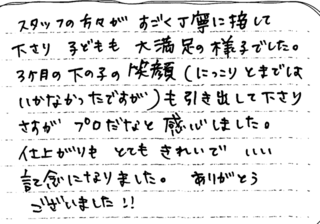 スタッフの方々が すごく丁寧に接して
下さり 子どもも 大満足の様子でした。
3ヶ月の下の子の笑顔(にっこりとまでは
いかなかったですが)も引き出して下さり
さすが プロだなと 感心しました。
仕上がりも とてもきれいで いい
記念になりました。 ありがとう
ございました!!